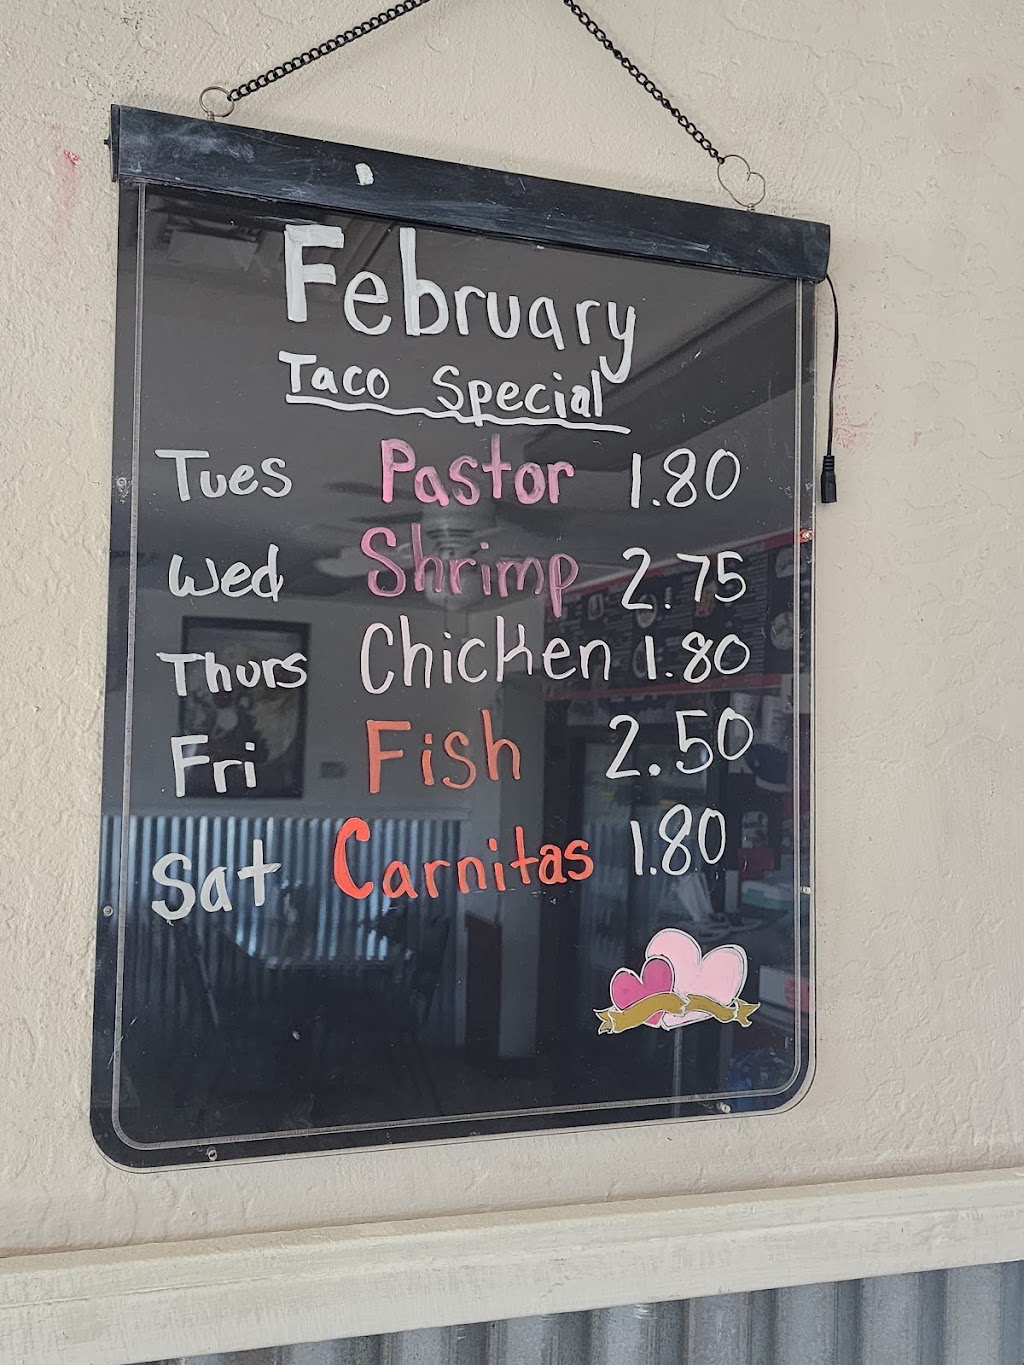 February
Taco Special
Tues Pastor 1.80
Wed Shrimp 2.75
Thurs Chicken 1.80
Fri Fish 2.50
Sat Carnitas 1.80